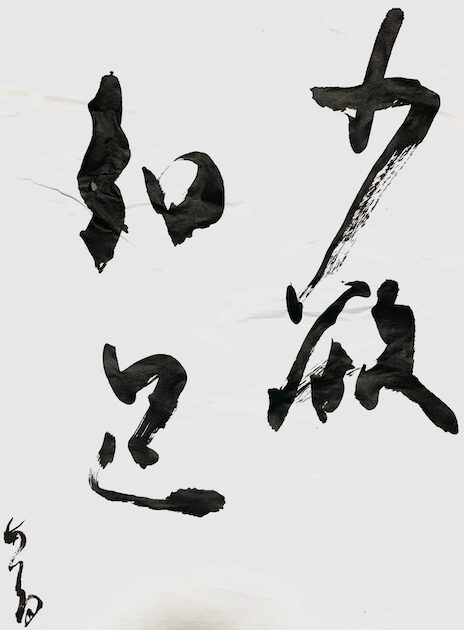 少欲
知足